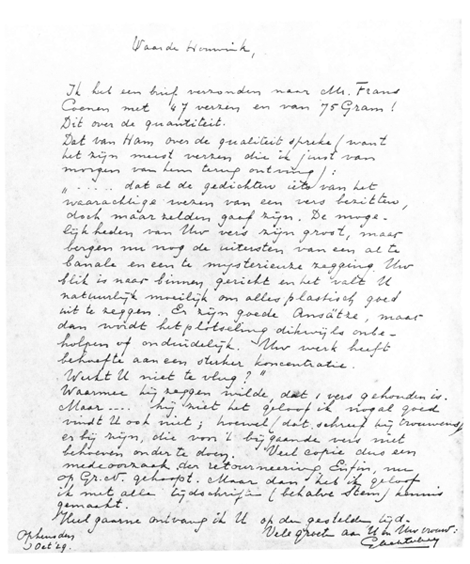 Waarde Houwink,
Ik heb een brief verzonden naar Mr. Frans
Coenen met 47 verzen en van 75 Gram!
Dit over de quantiteit.
Dat van Ham over de qualiteit spreke (want
het zijn meest verzen die ik juist van
morgen van hem terug ontving):
"..... dat al de gedichten iets van het
waarachtige wezen van een vers bezitten,
doch maar zelden gaaf zijn. De moge-
lijkheden van Uw vers zijn groot, maar
bergen nu nog de uitersten van een al te
banale en een te mysterieuze zegging. Uw
blik is naar binnen gericht en het valt U
natuurlijk moeilijk om alles plastisch goed
uit te zeggen. Er zijn goede Ansätze, maar
dan wordt het plotseling dikwijls onbe-
holpen of onduidelijk. Uw werk heeft
behoefte aan een sterker koncentratie.
Werkt U niet te vlug?"
Waarmee hij zeggen wilde, dat 1 vers gehouden is.
Maar .... hij ziet het geloof ik nogal goed
vindt U ook niet; hoewel (dat schreef hij trouwens)
er bij zijn, die voor 't bijgaande vers niet
behoeven onder te doen. Veel copie dus een
medeoorzaak der retourneering. Enfin, nu
op Gr.N. gehoopt. Maar dan heb ik geloof
ik met alle tijdschriften (behalve Stem) kennis
gemaakt.
Heel gaarne ontvang ik U op den gestelden tijd.
Vele groeten aan U en Uw vrouw:
GAchterberg
Opheusden
Oct '29.